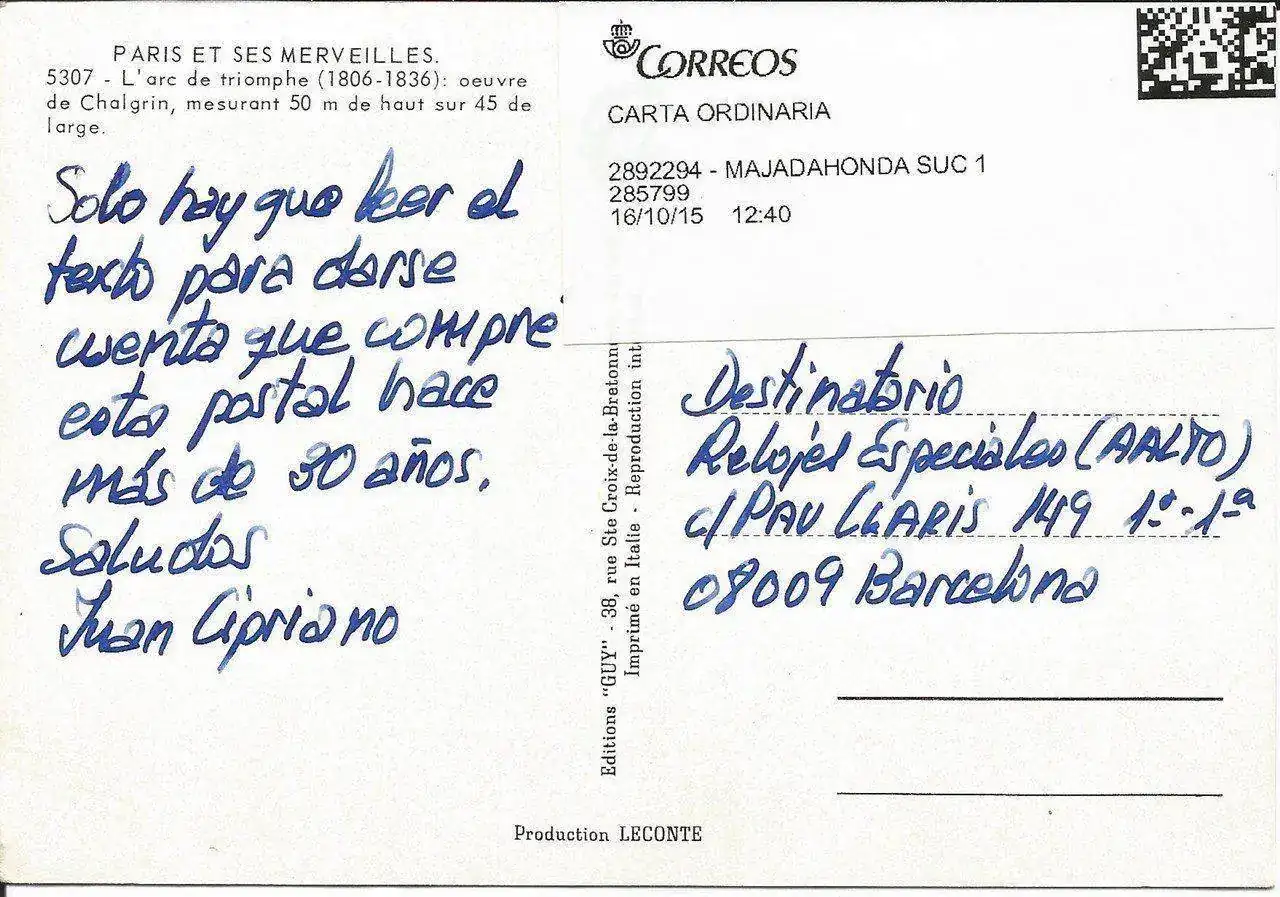 PARIS ET SES MERVEILLES.
5307 - L'arc de triomphe (1806-1836): oeuvre
de Chalgrin, mesurant 50 m de haut sur 45 de
large.
Solo hay que leer el
texto para darse
cuenta que compre
esta postal hace
más de 30 años.
Saludos
Juan Cipriano
CORREOS
CARTA ORDINARIA
2892294 - MAJADAHONDA SUC 1
285799
16/10/15 12:40
Editions "GUY" - 38, rue Ste Croix-de-la-Bretonne
Imprimé en Italie - Reproduction int
Destinatario
Relojes Especiales (AALTO)
c/ PAU CLARIS 149 1º-1ª
08009 Barcelona
Production LECONTE